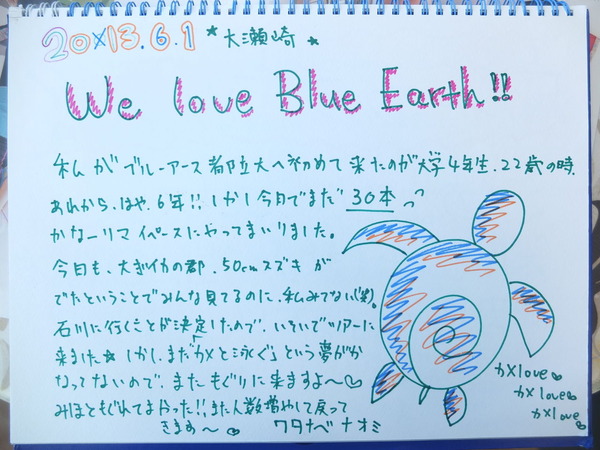 20×13.6.1 ★大瀬崎★
We love Blue Earth!!
私がブルーアース都立大へ初めて来たのが大学4年生.22歳の時.
あれから、はや、6年!! しかし今日でまだ 30本
かなーりマイペースにやってまいりました。
今日も、大きいイカの群、50cmスズキが
でたということでみんな見てるのに、私みてない(笑)。
石川に行くことが決定したので、いそいでツアーに
来ました★ しかし、まだ「カメと泳ぐ」という夢がか
なってないので、またもぐりに来ますよ〜♡
みほともぐれてよかった!! また人数増やして戻って
きまぁ〜♡ ワタナベ ナオミ
カメlove♡
カメlove♡
カメlove♡